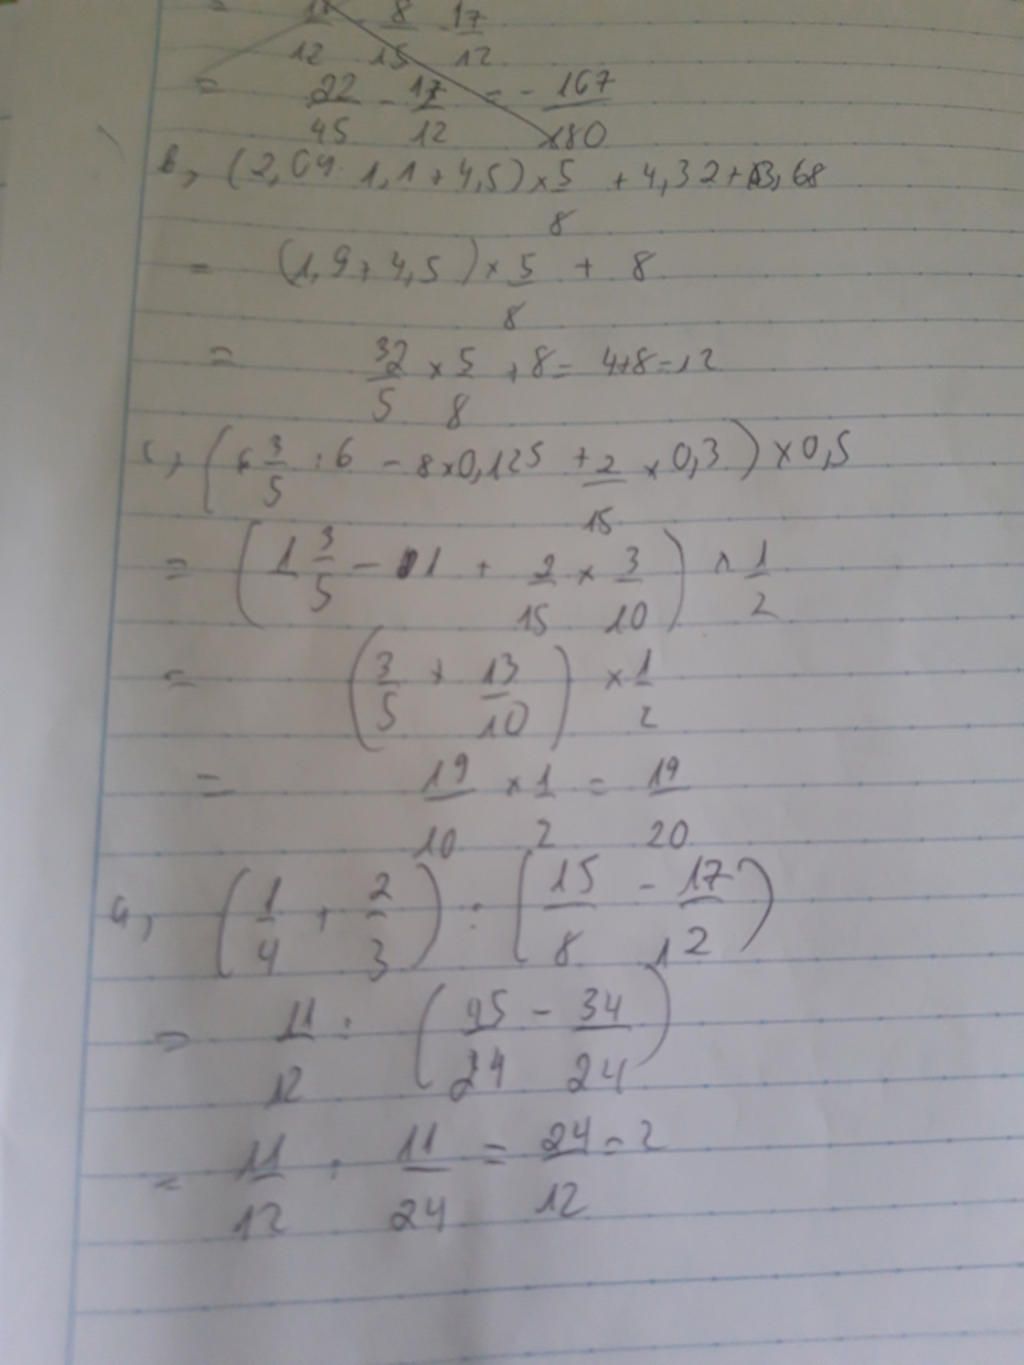 = 8/15 17/12
= 22/45 - 17/12 = - 167/180
b, (2,09 : 1,1 + 4,5) × 5/8 + 4,32 + 3,68
= (1,9 + 4,5) × 5/8 + 8
= 32/5 × 5/8 + 8 = 4+8=12
c, (6 3/5 : 6 - 8×0,125 + 2/15 × 0,3) × 0,5
= (1 3/5 - 1 + 2/15 × 3/10) × 1/2
= (3/5 + 13/10) × 1/2
= 19/10 × 1/2 = 19/20
a, (1/4 + 2/3) : (15/8 - 17/12)
= 11/12 : (45/24 - 34/24)
= 11/12 : 11/24 = 24/12 = 2